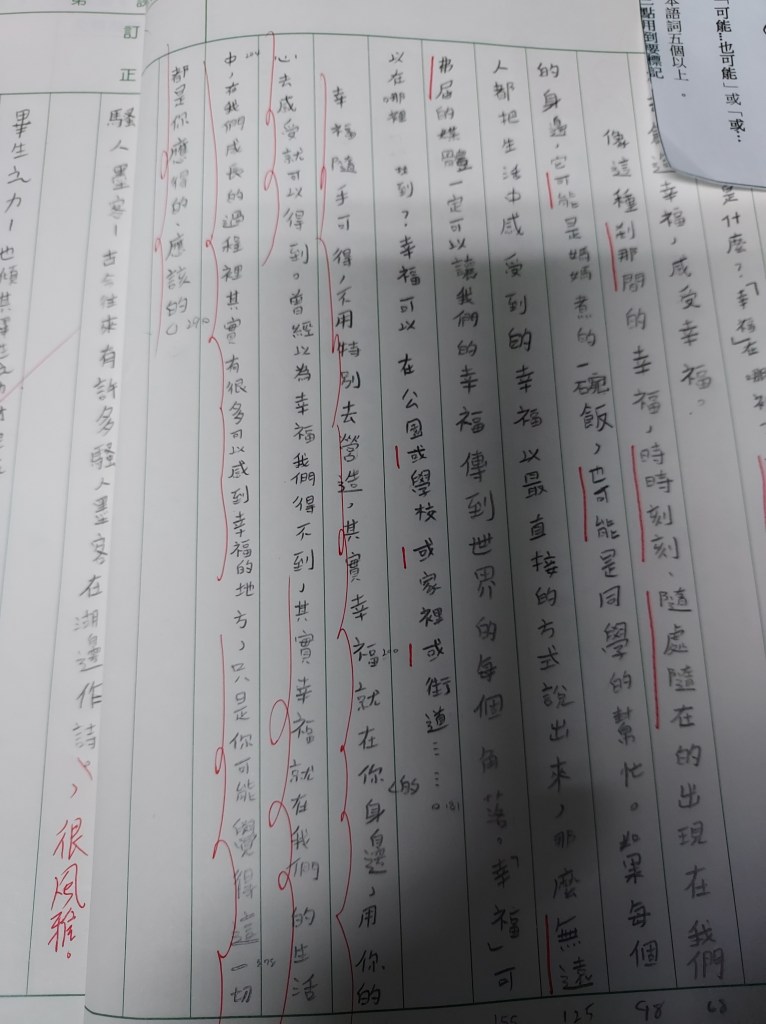 「可能…也可能」或「或…
本語詞五個以上。
三點用到要標記
是什麼？「幸福」在哪裡
造幸福，感受幸福。
像這種剎那間的幸福，時時刻刻、隨處隨在的出現在我們
的身邊，它可能是媽媽煮的一碗飯，也可能是同學的幫忙。如果每個
人都把生活中感受到的幸福以最直接的方式說出來，那麼無遠
弗屆的媒體一定可以讓我們的幸福傳到世界的每個角落，「幸福」可
以在哪裡找到？幸福可以在公園或學校或家裡或街道……。
幸福隨手可得，不用特別去營造，其實幸福就在你身邊，用你的
心去感受就可以得到。曾經以為幸福我們得不到，其實幸福就在我們的生活
中，在我們成長的過程裡其實有很多可以感到幸福的地方，只是你可能覺得這一切
都是你應得的，應該的。
68
98
125
155
181
200
275
290
的
訂正
騷人墨客－古今往來有許多騷人墨客在湖邊作詩，很風雅。
畢生之力－也傾其畢生之力